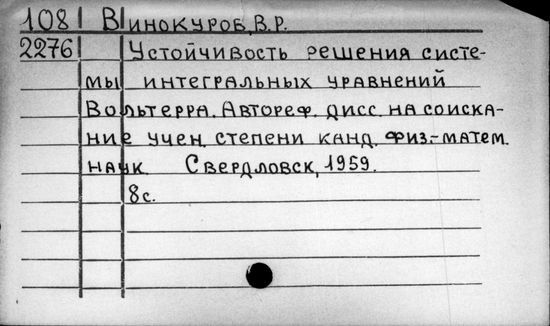 108 Винокуров, В.Р.
2276 Устойчивость решения систе-
мы интегральных уравнений
Вольтерра. Автореф. дисс. на соиска-
ние учен. степени канд. физ.-матем.
наук. Свердловск, 1959.
8с.